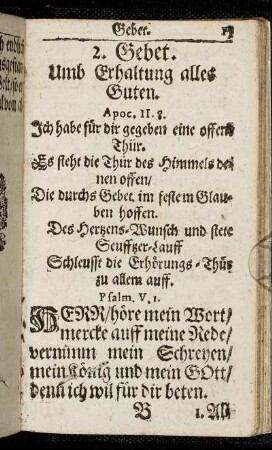 Gebet.
2. Gebet.
Umb Erhaltung alles
Guten.
Apoc. II. 8.
Ich habe für dir gegeben eine offene
Thür.
Es steht die Thür des Himmels de-
nen offen/
Die durchs Gebet im festem Glau-
ben hoffen.
Des Hertzens-Wunsch und stete
Seufftzer-Lauff
Schleusst die Erhörungs-Thür
zu allem auff.
Psalm. V. 1.
HERR/höre mein Wort/
mercke auff meine Rede/
vernimm mein Schreyen/
mein König und mein GOtt/
denn ich wil für dir beten.
B 1. All